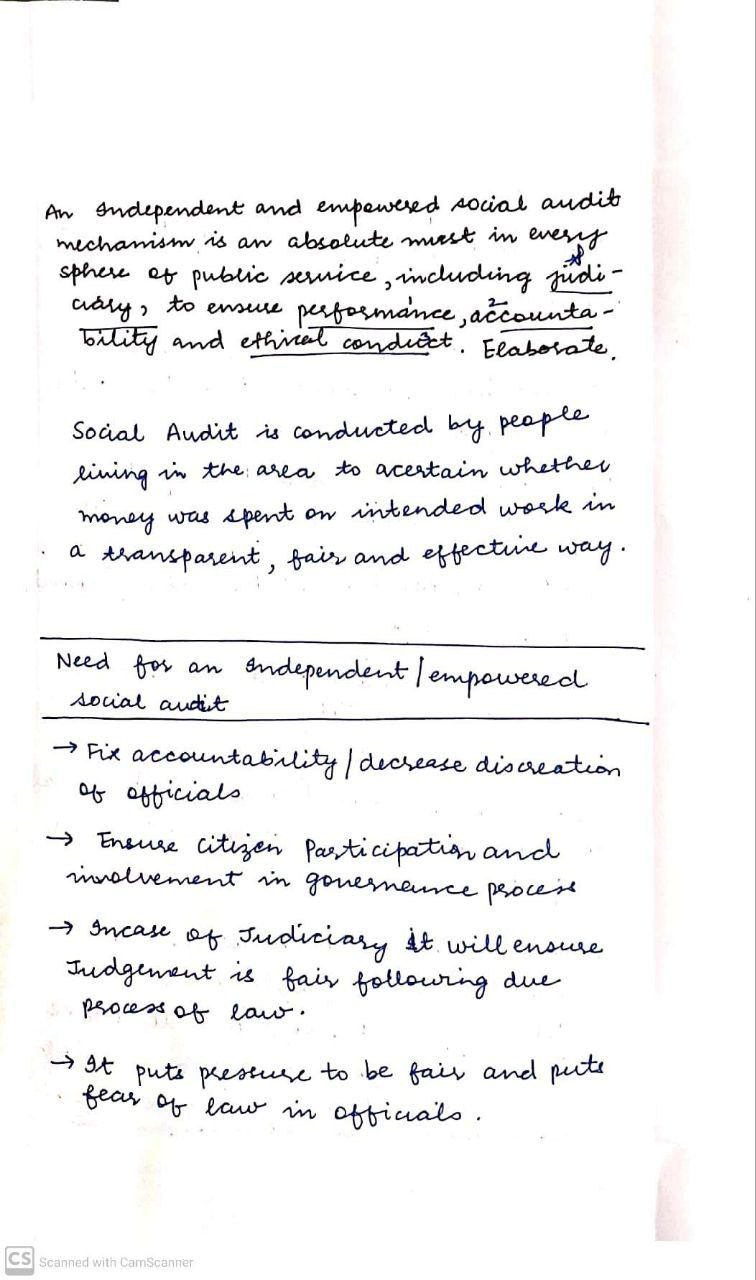 An Independent and empowered social audit
mechanism is an absolute must in every
sphere of public service, including judi-
ciary, to ensure performance, accounta-
bility and ethical conduct. Elaborate.
Social Audit is conducted by people
living in the area to acertain whether
money was spent on intended work in
a transparent, fair and effective way.
Need for an Independent/empowered
social audit
→ Fix accountability/decrease discreation
of officials
→ Ensure citizen Participation and
involvement in governence process
→ Incase of Judiciary it will ensure
Judgement is fair following due
process of law.
→ It puts pressure to be fair and puts
fear of law in officials.
CS Scanned with CamScanner